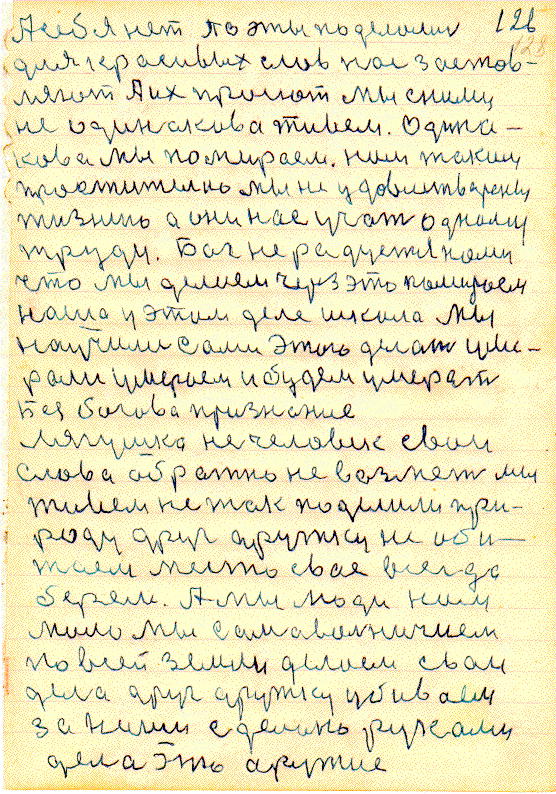 А себя нет по эты поделоми 128
128
для красивых слов нас застов-
ляют Аих просют мы сними
не одинакова живем. Одина-
кова мы помираем. нам таким
простительно мы не удовлитварены
жизнию а они нас учат одному
труду. Бог не радуется нами
что мы делаем через это помираем
наша у этом деле школа мы
научили сами этого делат уме-
рали умераем и будем умерат
Без богова признание
Лягушка не человик свои
слова обратно не возмет мы
живем не так поделили при-
роду друг дружку не оби-
жаем место свае всегда
берем. А мы люди нам
мало мы самавольничием
по всей земли делаем свои
дела друг дружку убиваем
за нами сделано руками
дела это аружие